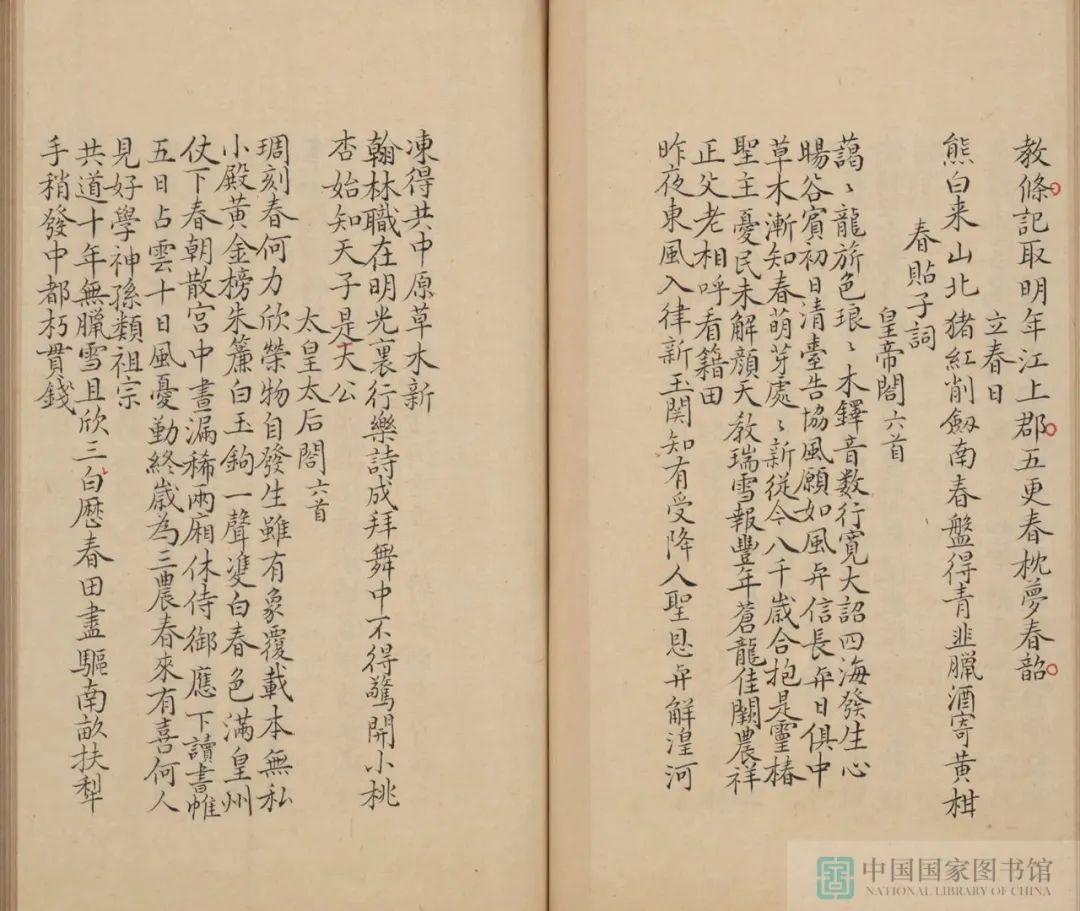 教條記取明年江上郡五更春枕夢春韶
立春日
熊白来山北猪紅削劔南春盤得青韭臘酒寄黄柑
春貼子詞
皇帝閤六首
藹〻龍旂色琅〻木鐸音数行寛大詔四海發生心
暘谷賓初日清臺告協風願如風与信長与日俱中
草木漸知春萌芽處〻新從今八千歳合抱是靈椿
聖主憂民未解顔天教瑞雪報豐年蒼龍佳闕農祥
正父老相呼看籍田
昨夜東風入律新玉関知有受降人聖恩与解湟河
凍得共中原草木新
翰林職在明光裏行樂詩成拜舞中不得驚開小桃
杏始知天子是天公
太皇太后閤六首
琱刻春何力欣榮物自發生雖有象覆載本無私
小殿黄金榜朱簾白玉鉤一聲雙白春色滿皇州
仗下春朝散宫中晝漏稀兩廂休侍御應下讀書帷
五日占雲十日風憂勤終歳為三農春來有喜何人
見好學神孫類祖宗
共道十年無臘雪且欣三白壓春田盡驅南畝扶犁
手稍發中都朽貫錢
中国国家图书馆
NATIONAL LIBRARY OF CHINA